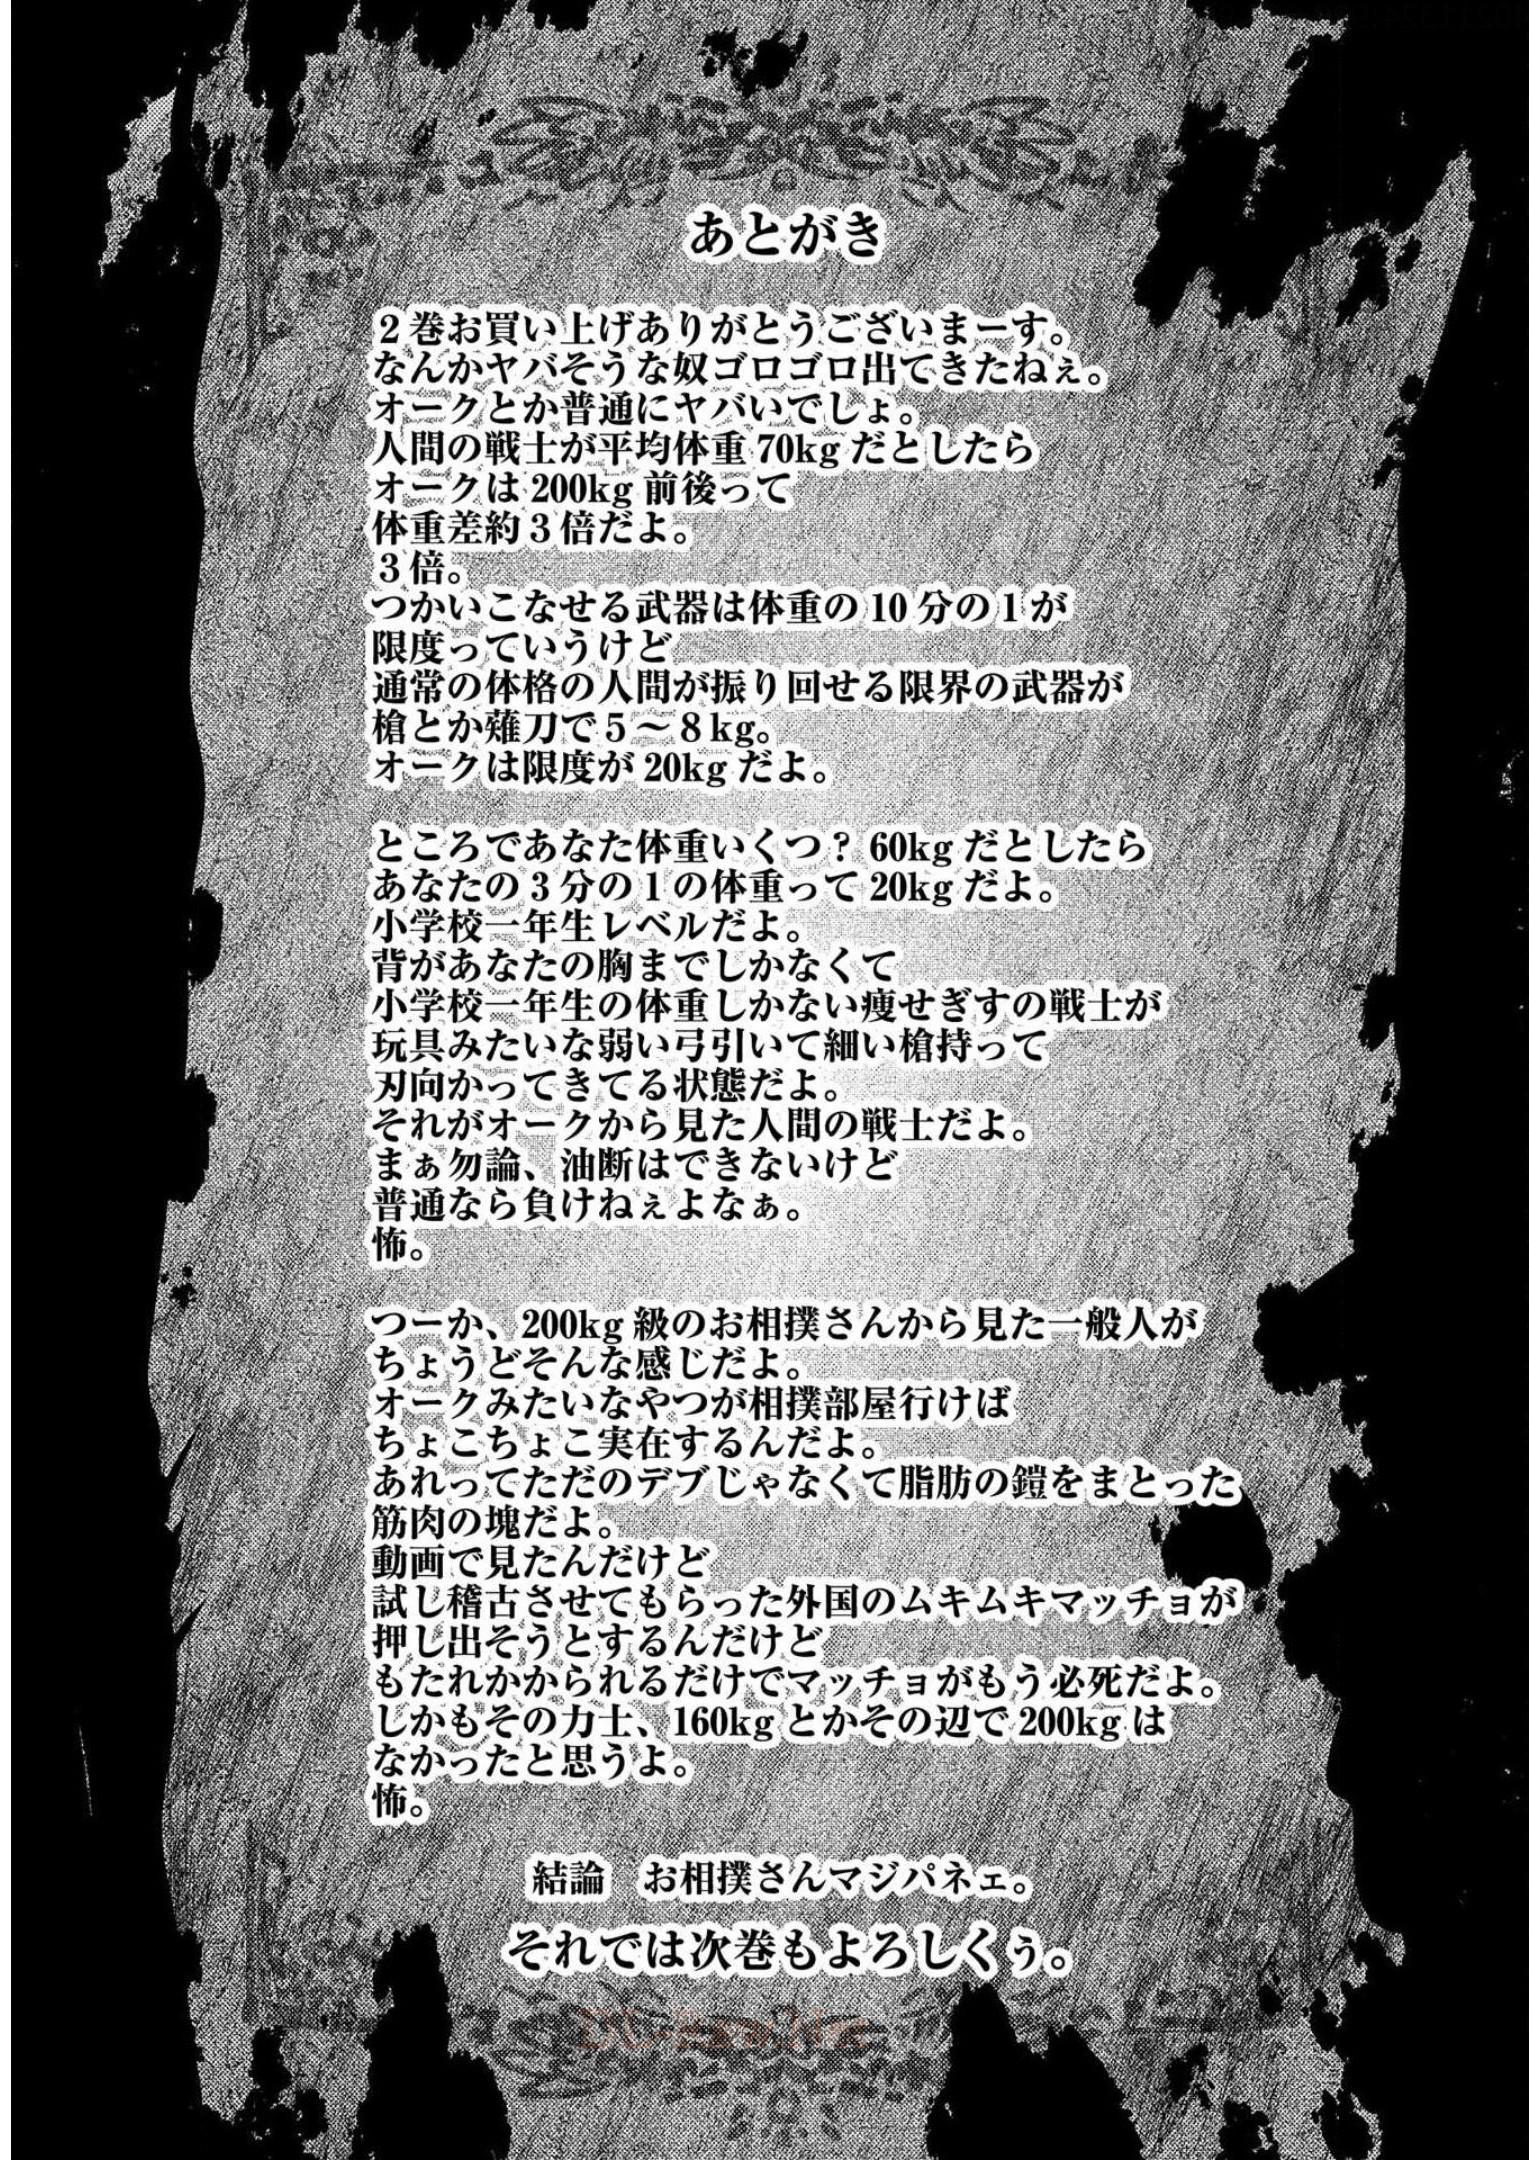 あとがき
2巻お買い上げありがとうございまーす。
なんかヤバそうな奴ゴロゴロ出てきたねぇ。
オークとか普通にヤバいでしょ。
人間の戦士が平均体重70kgだとしたら
オークは200kg前後って
体重差約3倍だよ。
3倍。
つかいこなせる武器は体重の10分の1が
限度っていうけど
通常の体格の人間が振り回せる限界の武器が
槍とか薙刀で5～8kg。
オークは限度が20kgだよ。
ところであなた体重いくつ? 60kgだとしたら
あなたの3分の1の体重って20kgだよ。
小学校一年生レベルだよ。
背があなたの胸までしかなくて
小学校一年生の体重しかない痩せぎすの戦士が
玩具みたいな弱い弓引いて細い槍持って
刃向かってきてる状態だよ。
それがオークから見た人間の戦士だよ。
まぁ勿論、油断はできないけど
普通なら負けねぇよなぁ。
怖。
つーか、200kg級のお相撲さんから見た一般人が
ちょうどそんな感じだよ。
オークみたいなやつが相撲部屋行けば
ちょこちょこ実在するんだよ。
あれってただのデブじゃなくて脂肪の鎧をまとった
筋肉の塊だよ。
動画で見たんだけど
試し稽古させてもらった外国のムキムキマッチョが
押し出そうとするんだけど
もたれかかられるだけでマッチョがもう必死だよ。
しかもその力士、160kgとかその辺で200kgは
なかったと思うよ。
怖。
結論　お相撲さんマジパネェ。
それでは次巻もよろしくぅ。